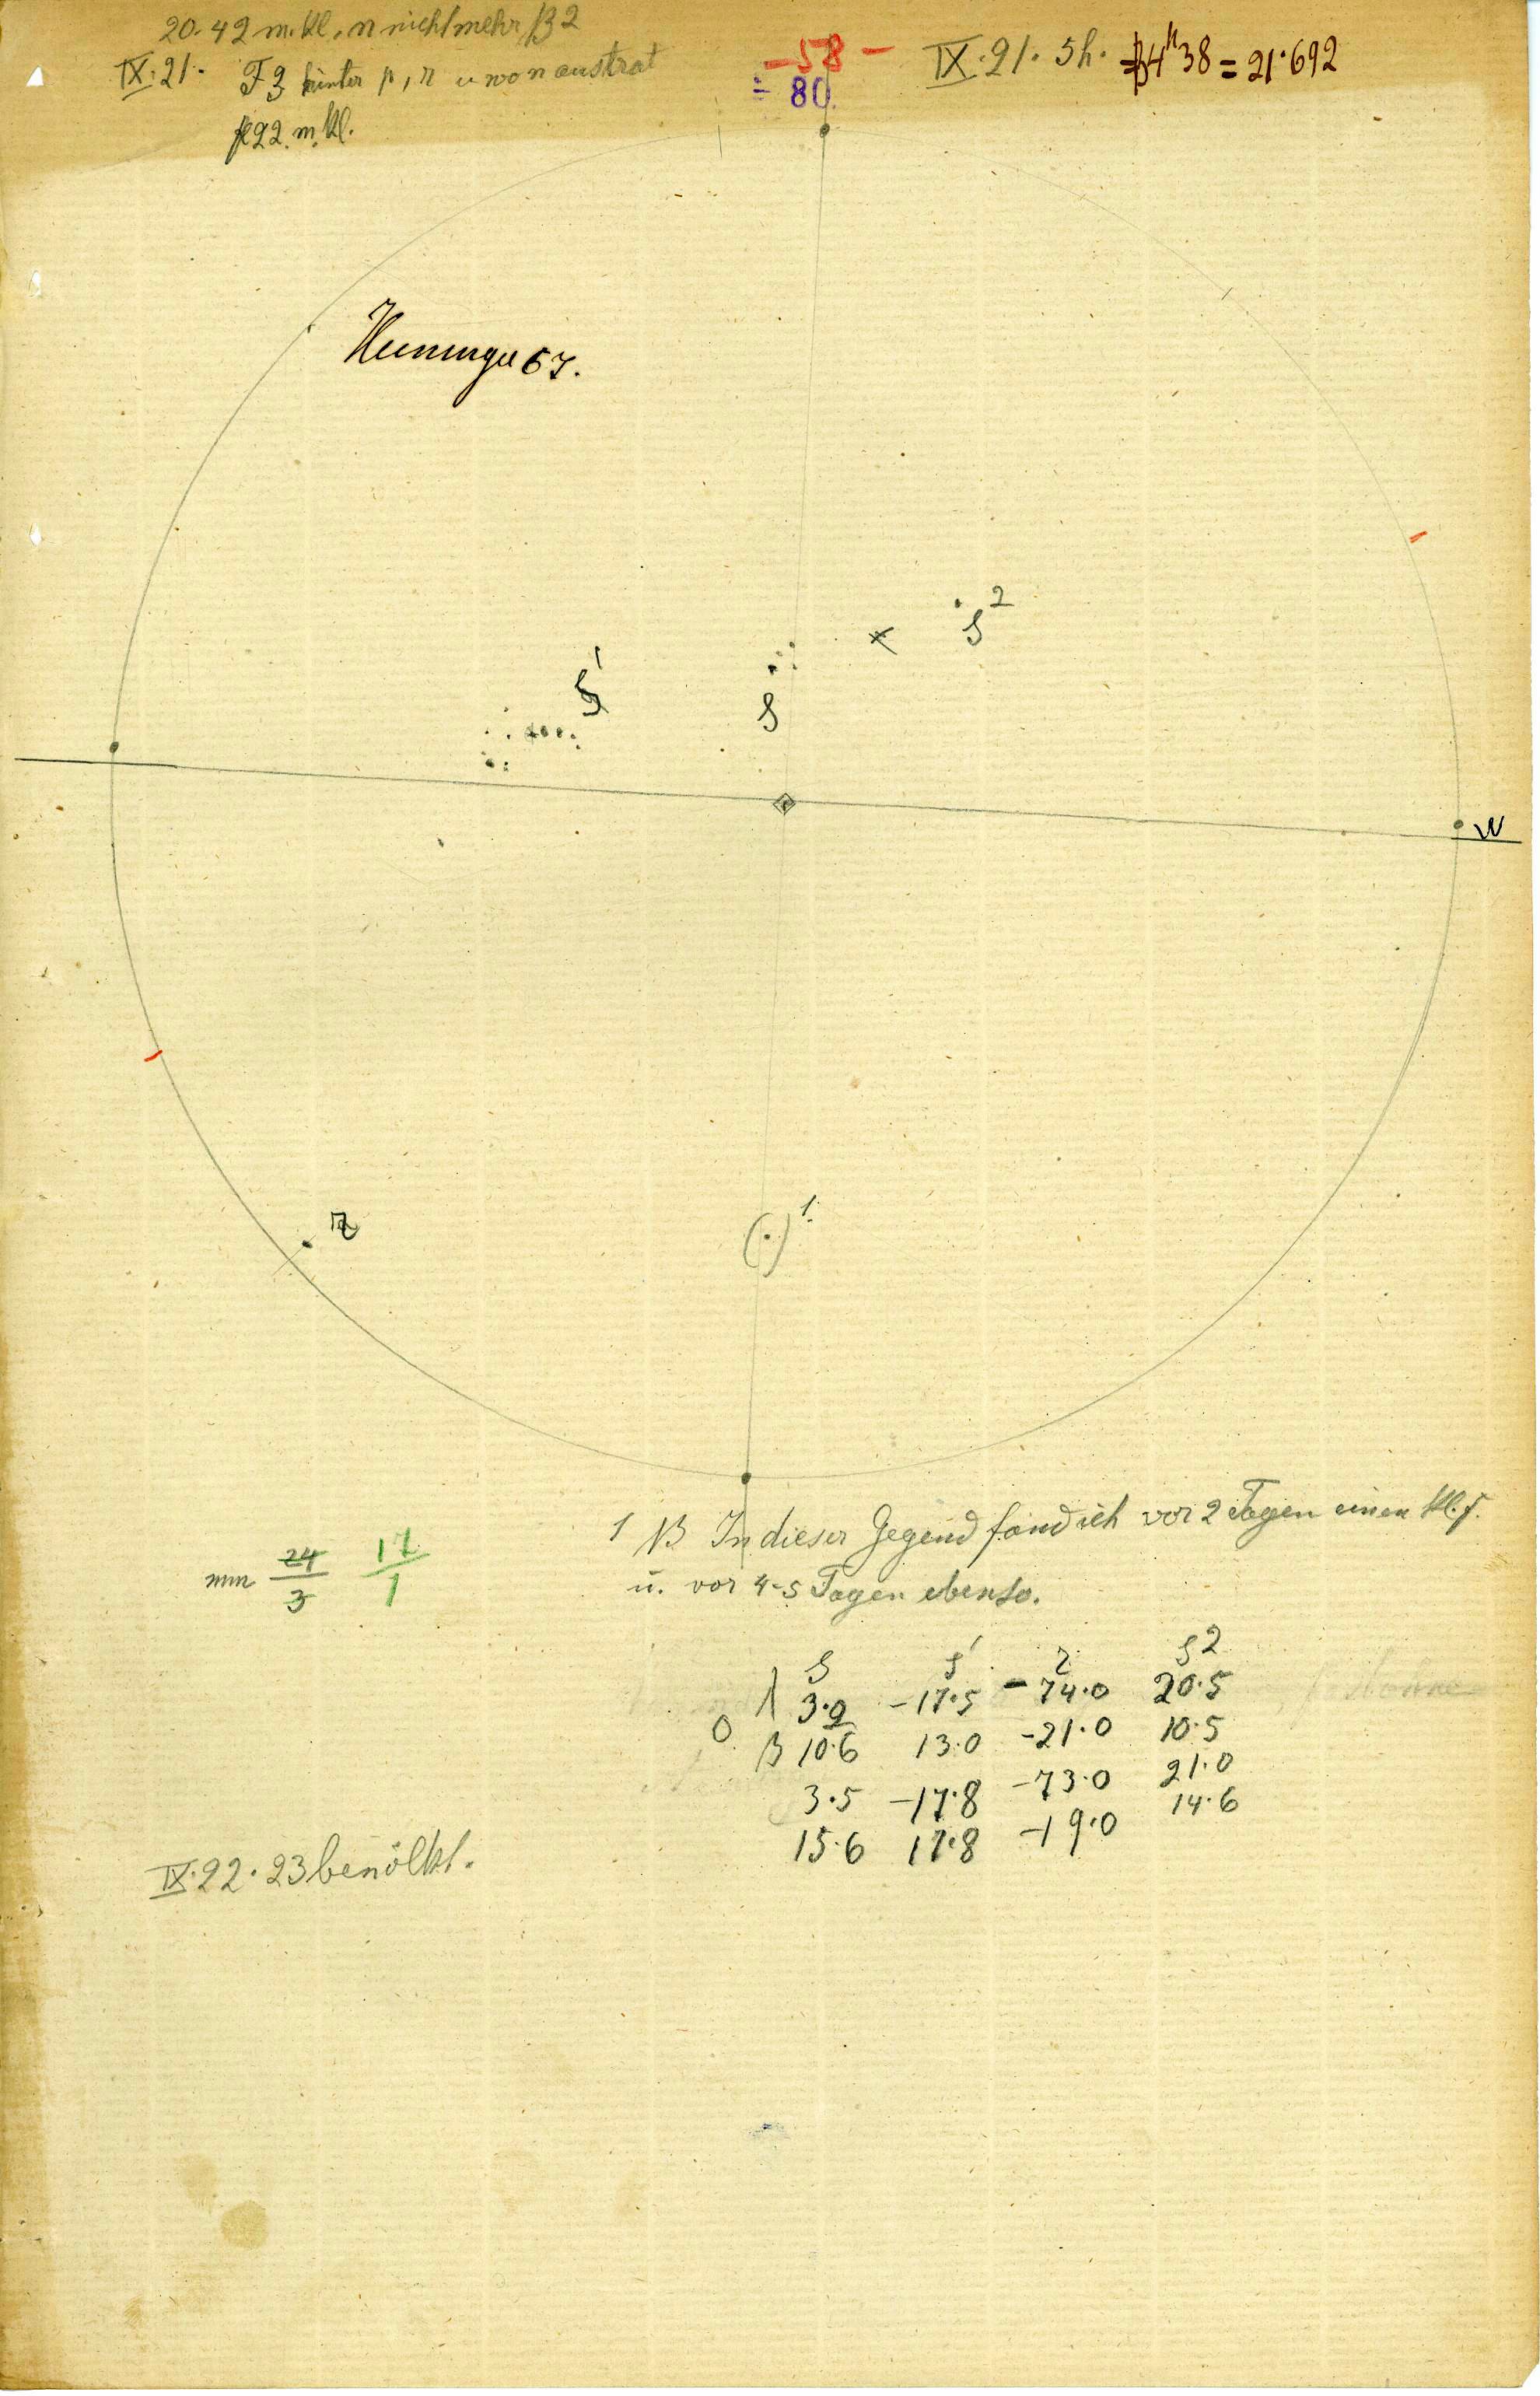 20. 42 m. kl. n nicht mehr β2
IX. 21. F3 hinter p, r u wo n austrat
22. m. kl.
-58-
= 80.
IX. 21. 5h. 4h38 = 21.692
67.
s 2
s 1
s
W
r
(.) 1.
1 In dieser Gegend fand ich vor 2 Tagen einen kl. f.
u. vor 4-5 Tagen ebenso.
mm 24/3 17/1
s s' r s2
λ 3.2 -17.5 -74.0 20.5
β 10.6 13.0 -21.0 10.5
3.5 -17.8 -73.0 21.0
15.6 17.8 -19.0 14.6
IX. 22. 23 bewölkt.